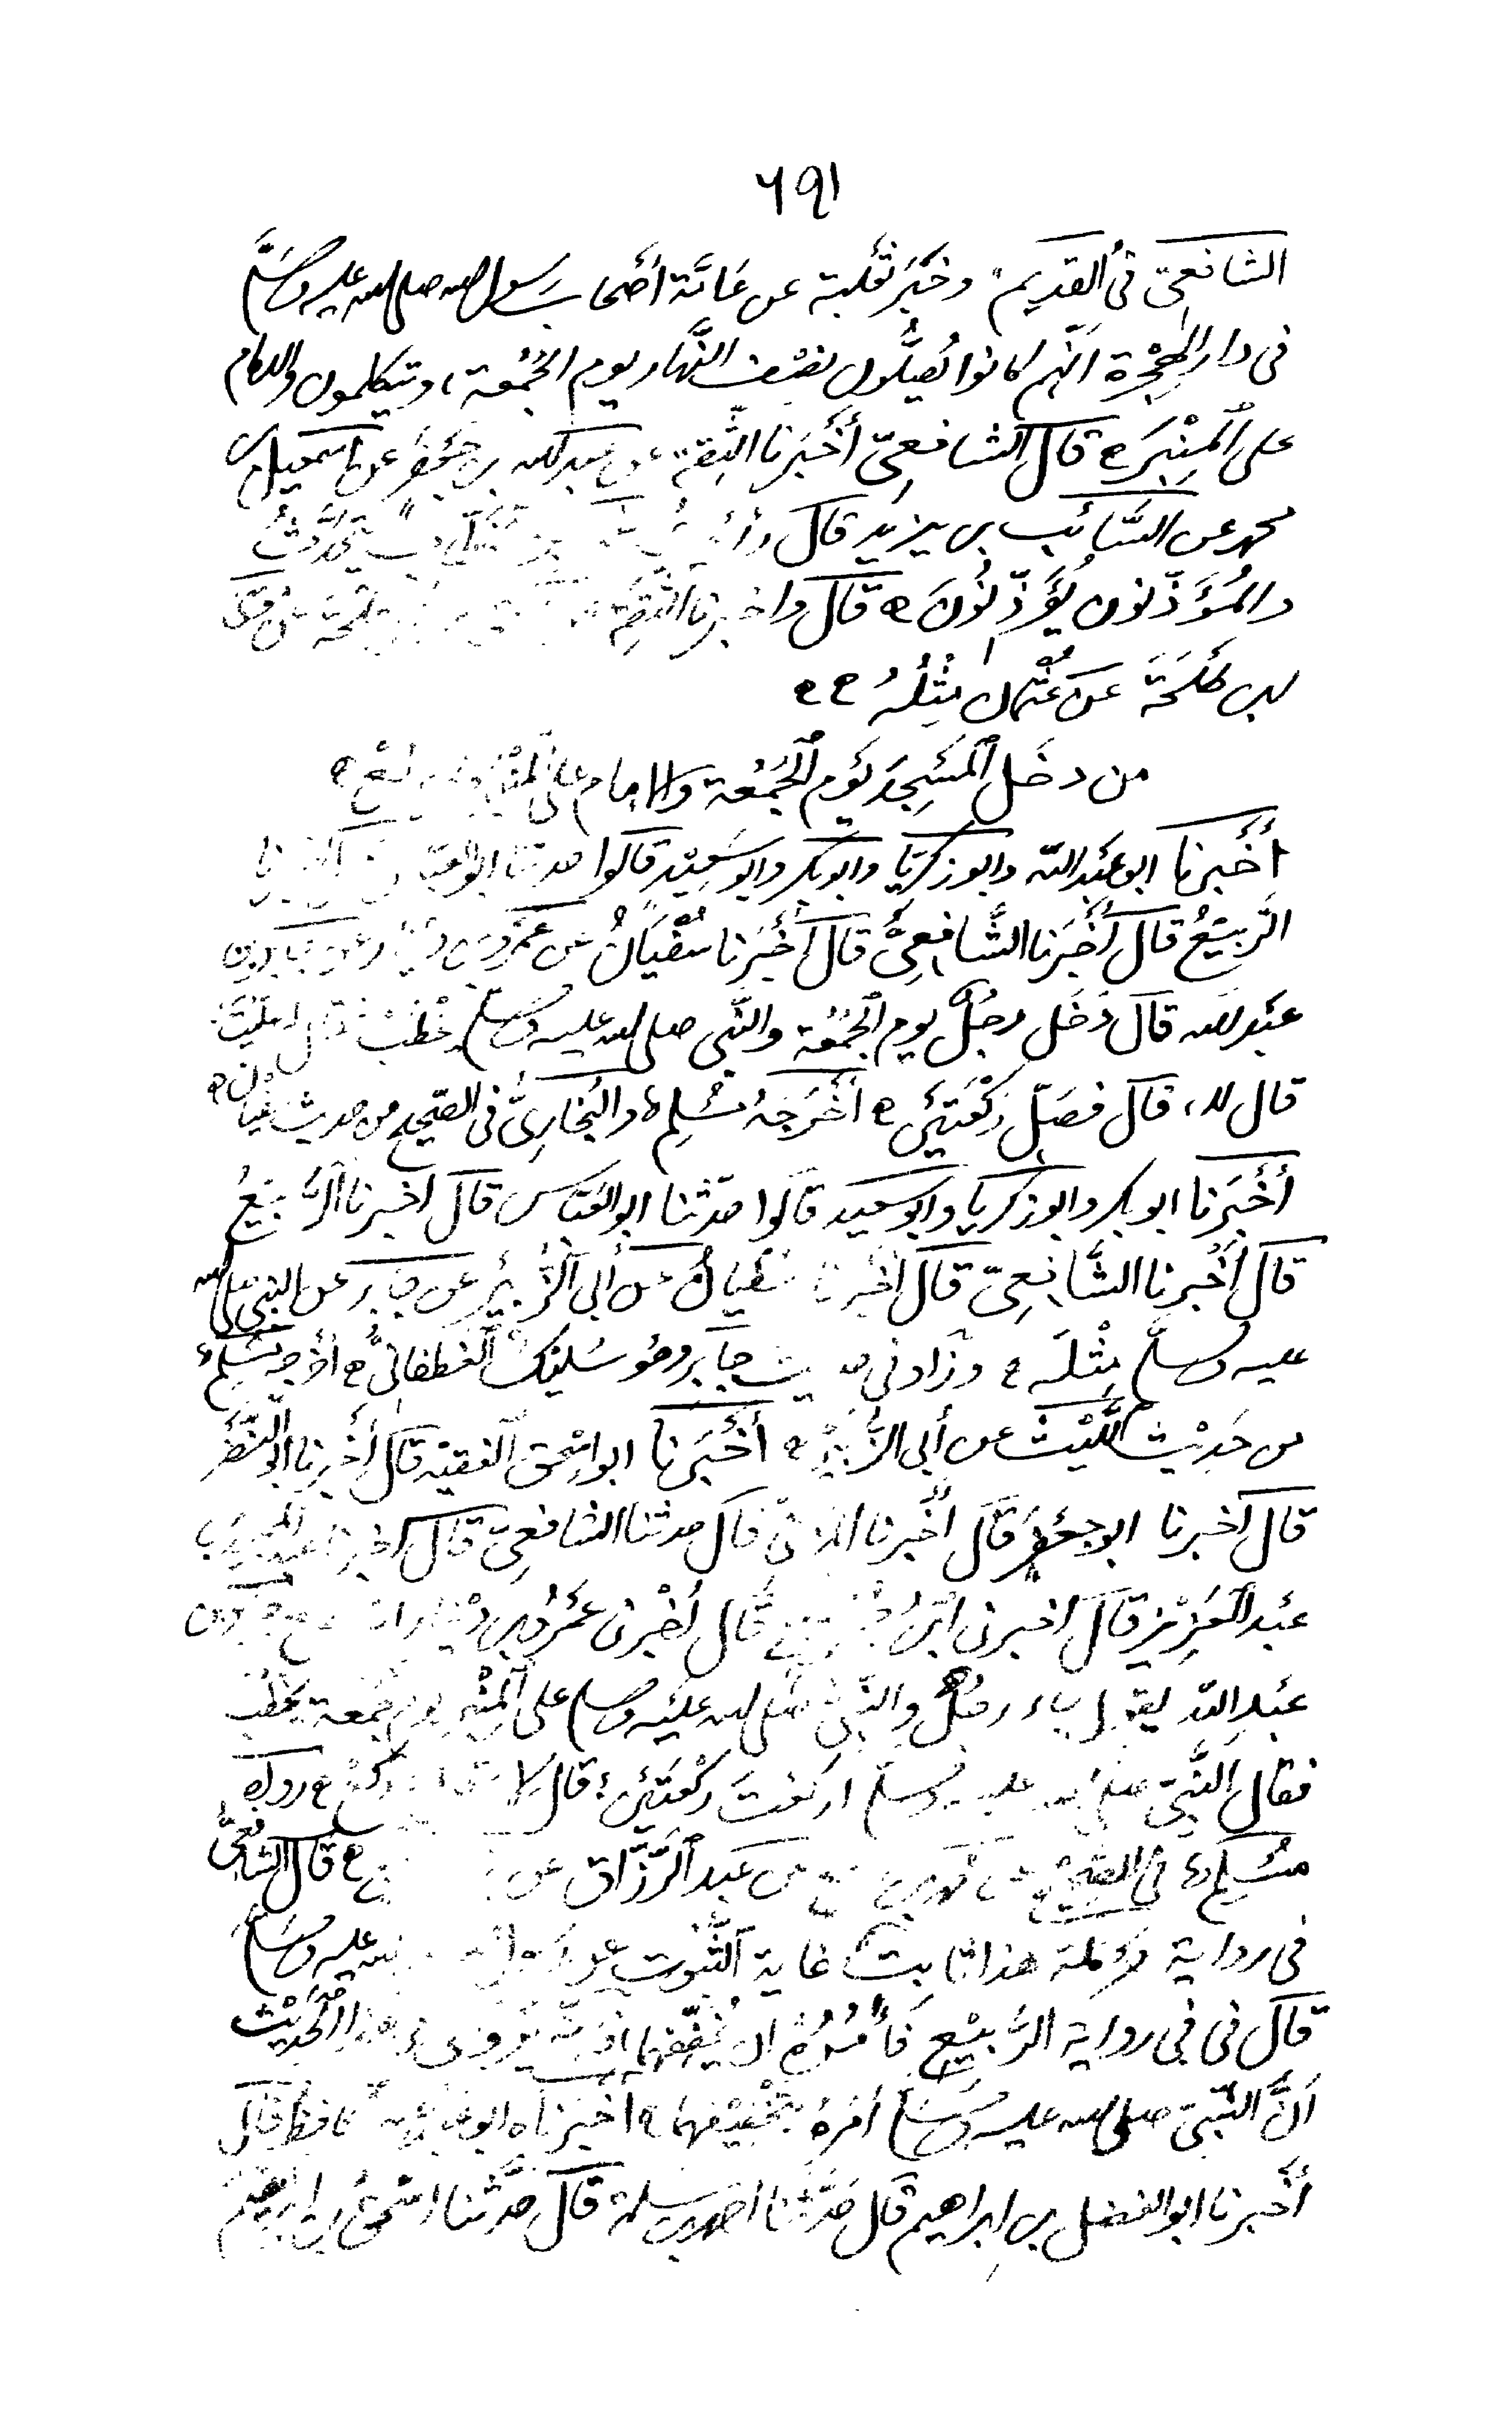 ٦٩١
الشافعي في القديم وخبر ثعلبة عن عامة أصحاب رسول الله صلى الله عليه وسلم
في دار الهجرة أنهم كانوا يصلون نصف النهار يوم الجمعة، ويتكلمون والامام
على المنبر ه قال الشافعي أخبرنا الثقة عن عبد الله بن جعفر عن اسمعيل بن
محمد عن السائب بن يزيد قال يتحدث
والمؤذنون يؤذنون ه قال واخبرنا الثقة طلحة عن
بن طلحة عن عثمن مثله ه ه
من دخل المسجد يوم الجمعة والامام على المنبر ه
أخبرنا ابو عبد الله وابو زكريا وابو بكر وابو سعيد قالوا حدثنا ابو العباس أخبرنا
الربيع قال أخبرنا الشافعي قال أخبرنا سفيان عن عمرو بن دينار عن جابر بن
عبد الله قال دخل رجل يوم الجمعة والنبي صلى الله عليه وسلم يخطب فقال اصليت
قال لا، قال فصل ركعتين ه أخرجه مسلم والبخاري في الصحيح من حديث سفيان ه
أخبرنا ابو بكر وابو زكريا وابو سعيد قالوا حدثنا ابو العباس قال اخبرنا الربيع
قال أخبرنا الشافعي قال اخبرنا سفيان عن أبي الزبير عن جابر عن النبي صلى الله
عليه وسلم مثله ه وزاد في حديث جابر وهو سليك الغطفاني ه أخرجه مسلم
من حديث الليث عن أبي الزبير ه أخبرنا ابو اسحق الفقيه قال أخبرنا ابو النضر
قال اخبرنا ابو جعفر قال أخبرنا المزني قال حدثنا الشافعي قال اخبرنا عبد المجيد بن
عبد العزيز قال اخبرني ابن جريج قال أخبرني عمرو بن دينار جابر بن
عبد الله يقول جاء رجل والنبي صلى الله عليه وسلم على المنبر يوم جمعة يخطب
فقال النبي صلى الله عليه وسلم اركعت ركعتين؟ قال لا اركع ه رواه
مسلم في الصحيح عن محمد بن عن عبد الرزاق عن ه قال الشافعي
في رواية حرملة هذا ثابت غاية الثبوت عن الله عليه وسلم
قال في في رواية الربيع فأمره ان يخففهما فإنه يروى في هذا الحديث
أن النبي صلى الله عليه وسلم أمره بتخفيفهما ه اخبرناه ابو عبد الله الحافظ قال
أخبرنا ابو الفضل بن ابراهيم قال حدثنا احمد بن سلمة قال حدثنا اسحق بن ابراهيم